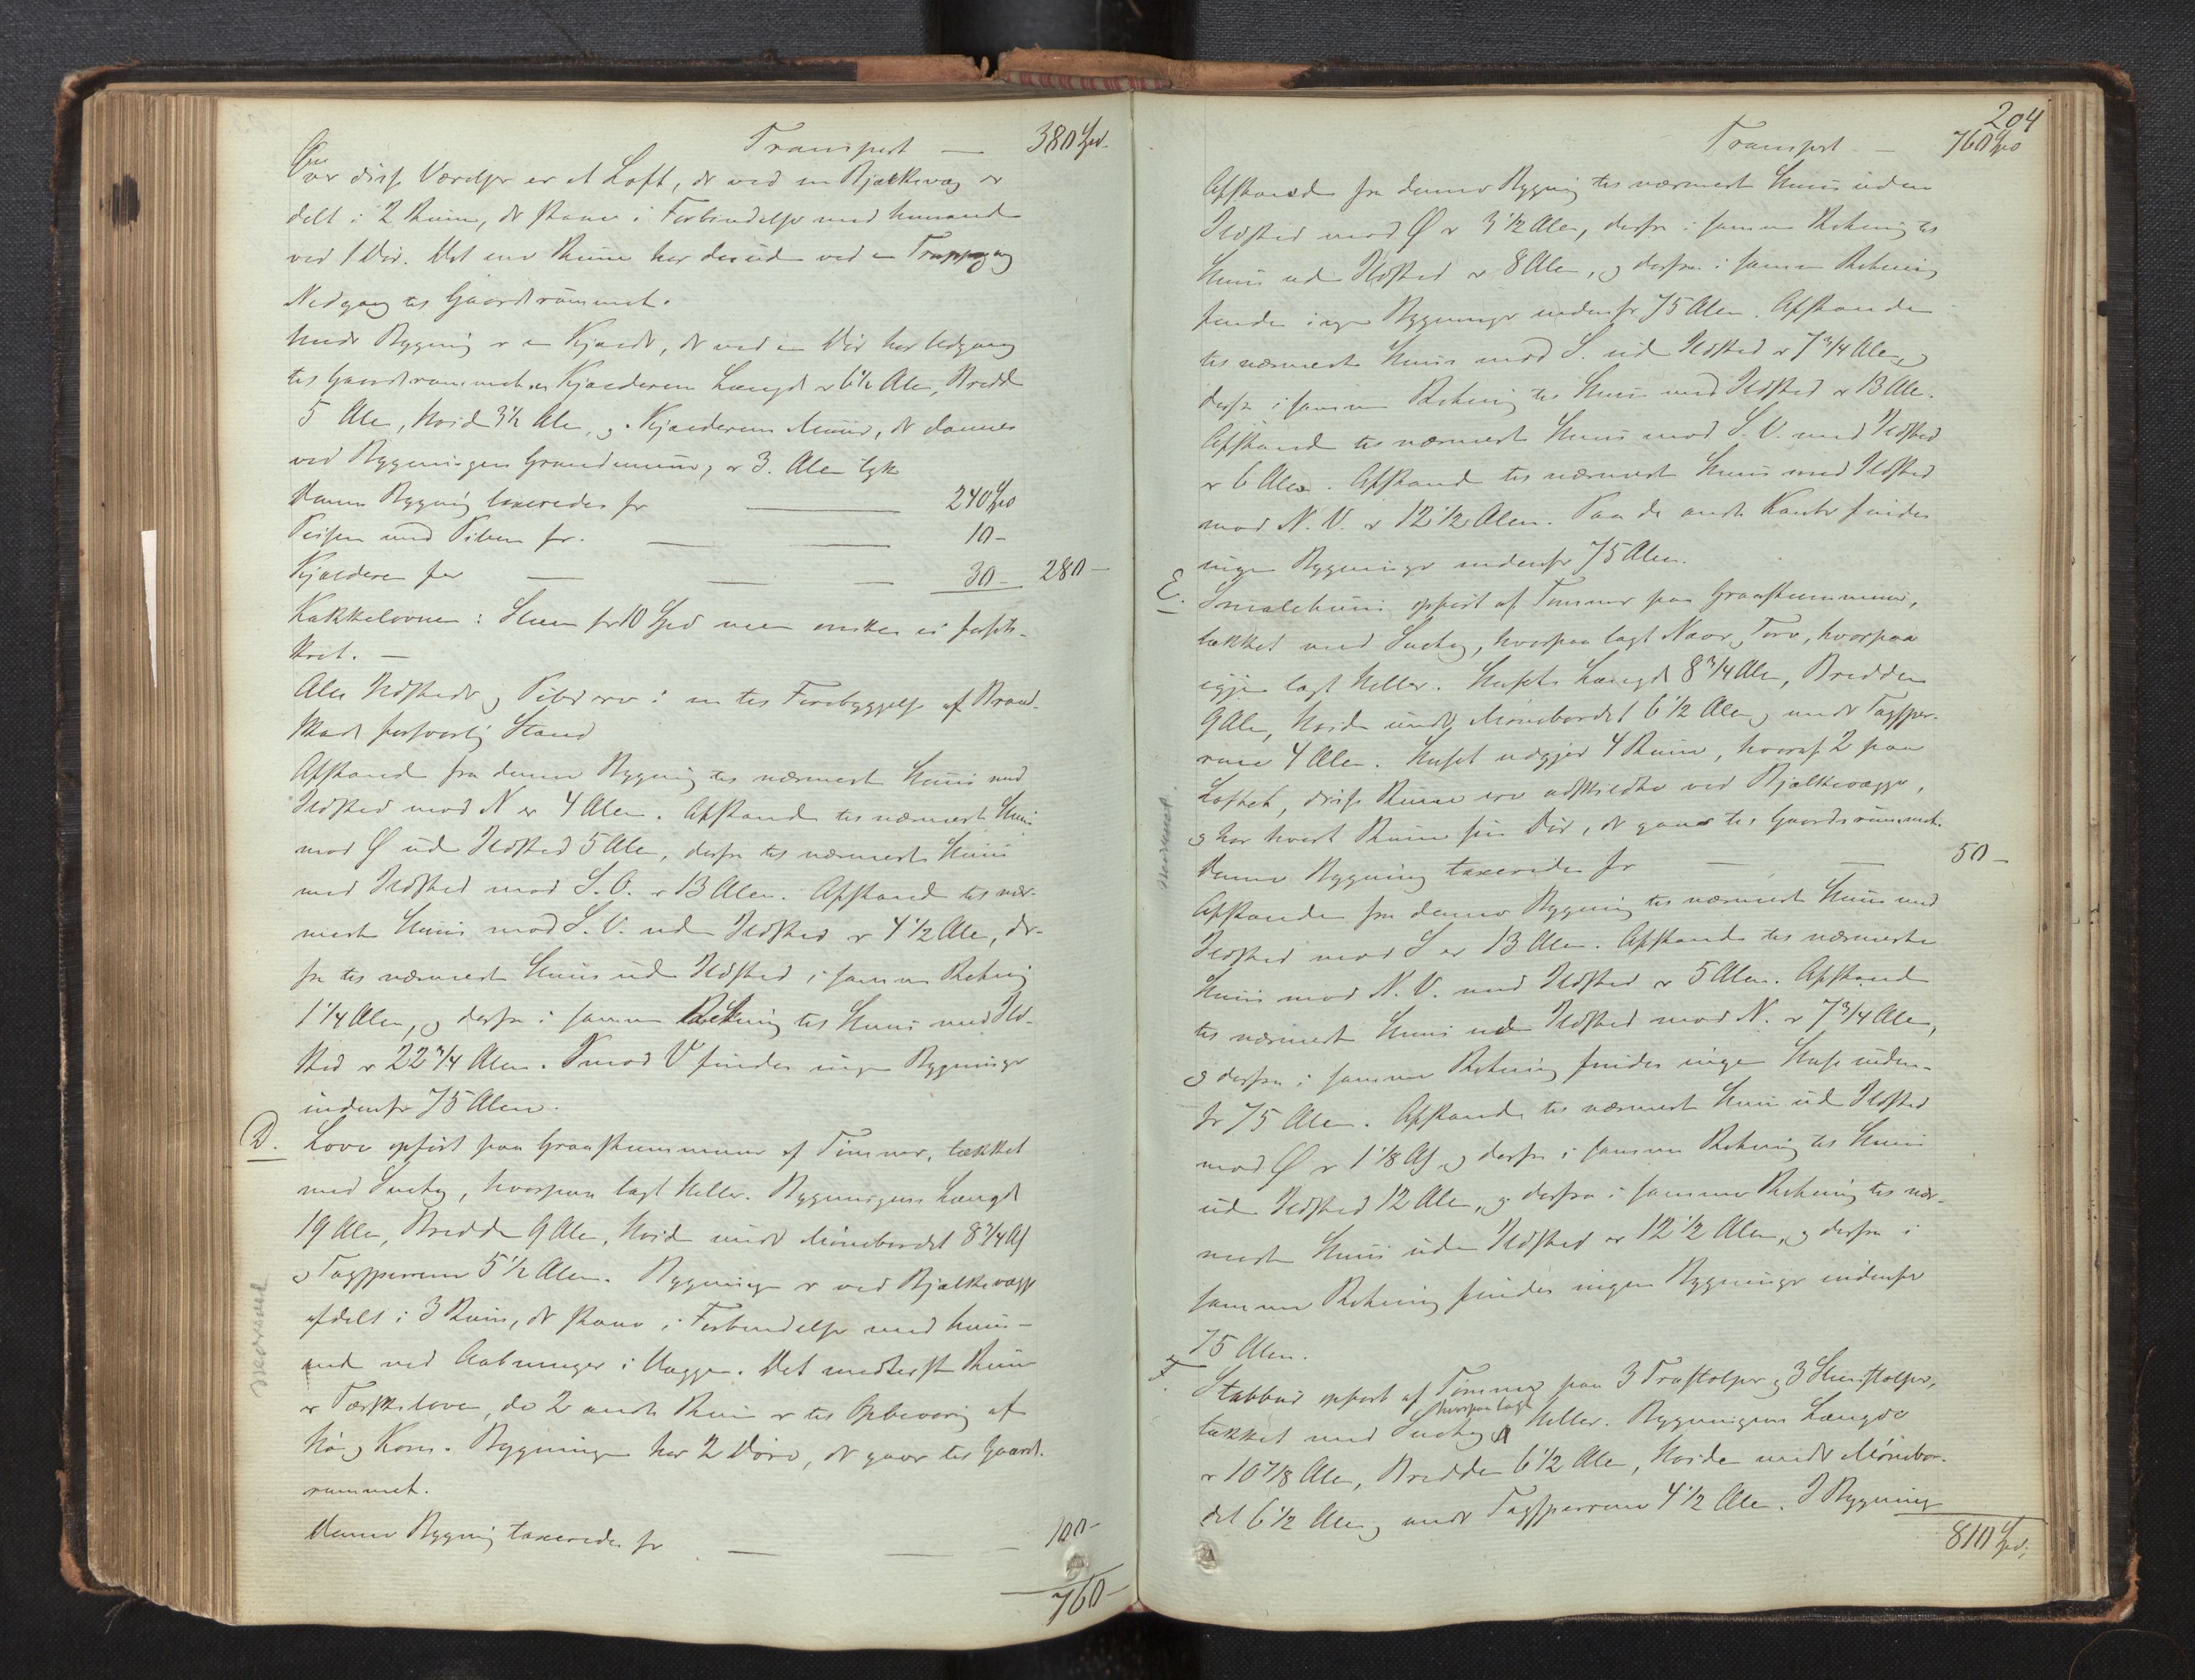 Transport — 380 Spd.
Over disse Værelser er et Loft, der ved en Bjælkevæg er
delt i 2 Rum, der staae i Forbindelse med hinanden
ved 1 Dør. Det ene Rum har desuden ved en Trappegang
Nedgang til Gaardsrummet.
Under Bygning er en Kjælder, der ved en Dør har Udgang
til Gaardsrummet. Kjælderens Længde er 6½ Alen, Bredde
5 Alen, Høide 3½ Alen, og Kjælderens Muur, der dannes
ved Bygningens Grundmuur, er 3. Alen tyk
Denne Bygning taxeredes for — 240 Spd
Peisen med Piben for — — 10 -
Kjælderen for — — — 30 - 280 -
Kakkelovnen i Stuen for 10 Spd men ønskes ei forsik-
kret. —
Alle Ildsteder og Piber ere i en til Forebyggelse af Brand-
skade forsvarlig Stand
Afstand fra denne Bygning til nærmeste Huus med
Ildsted mod N er 4 Alen. Afstanden til nærmeste Huus
mod Ø uden Ildsted 5 Alen, derfra til nærmeste Huus
med Ildsted mod S. O. er 13 Alen. Afstand til nær-
meste Huus mod S. V. uden Ildsted er 4½ Alen, der-
fra til nærmeste Huus uden Ildsted i samme Retning
1¼ Alen, og derfra i samme Retning til Huus med Ild-
sted er 22¾ Alen. mod V findes ingen Bygninger
indenfor 75 Alen.
D. Love opført paa Graasteensmuur af Tømmer, tækket
med Sutag, hvorpaa lagt Heller. Bygningens Længde
19 Alen, Bredde 9 Alen, Høide under Mønebordet 8¾ Al
og Tagsperrene 5½ Alen. Bygningen er ved Bjælkevægge
afdelt i 3 Rum, der staae i Forbindelse med hin-
anden ved Aabninger i Vægge. Det mederste Rum
er Tærskeloven, de 2 andre Rum er til Opbevaring af
Hø og Korn. Bygningen har 2 Døre, der gaaer til Gaards-
rummet.
Denne Bygning taxeredes for — — — 100 -
760 -
204
Transport — 760 Spd
Afstanden fra denne Bygning til nærmeste Huus uden
Ildsted mod Ø er 3½ Alen, derfra i samme Retning til
Huus uden Ildsted er 8 Alen, og derfra i samme Retning
findes ingen Bygninger indenfor 75 Alen. Afstanden
til nærmeste Huus mod S. uden Ildsted er 7¾ Alen, og
derfra i samme Retning til Huus med Ildsted er 13 Alen.
Afstand til nærmeste Huus mod S. V. med Ildsted
er 6 Alen. Afstand til nærmeste Huus med Ildsted
mod N. V. er 12½ Alen. Paa de andre Kanter findes
ingen Bygninger indenfor 75 Alen.
E. Smalehuus opført af Tømmer paa Graasteensmuur,
tækket med Sutag, hvorpaa lagt Næver og Torv, hvorpaa
igjen lagt Heller. Husets Længde 8¾ Alen, Bredden
9 Alen, Høiden under Mønebordet 6½ Alen og under Tagsper-
rene 4 Alen. Huset udgjør 4 Rum, hvoraf 2 paa
Loftet, disse Rum ere adskildte ved Bjælkevægge,
og har hvert Rum sin Dør, der gaaer til Gaardsrummet.
Denne Bygning taxeredes for — — 50 -
Afstanden fra denne Bygning til nærmeste Huus med
Ildsted mod S er 13 Alen. Afstanden til nærmeste
Huus mod N. V. med Ildsted er 5 Alen. Afstand
til nærmeste Huus uden Ildsted mod N. er 7¾ Alen,
og derfra i samme Retning findes ingen Huse inden-
for 75 Alen. Afstanden til nærmeste Huus uden Ildsted
mod Ø er 1⅛ Al og derfra i samme Retning til Huus
uden Ildsted 12 Alen, og derfra i samme Retning til nær-
meste Huus uden Ildsted er 12½ Alen, og derfra i
samme Retning findes ingen Bygninger indenfor
75 Alen.
F. Stabbur opført af Tømmer paa 3 Træstolper og 3 Steenstolper,
tækket med Sutag hvorpaa lagt Heller. Bygningens Længde
er 10⅞ Alen, Bredden 6½ Alen, Høiden under Mønebor-
det 6½ Alen og under Tagsperrene 4½ Alen. I Bygningen
810 Spd.